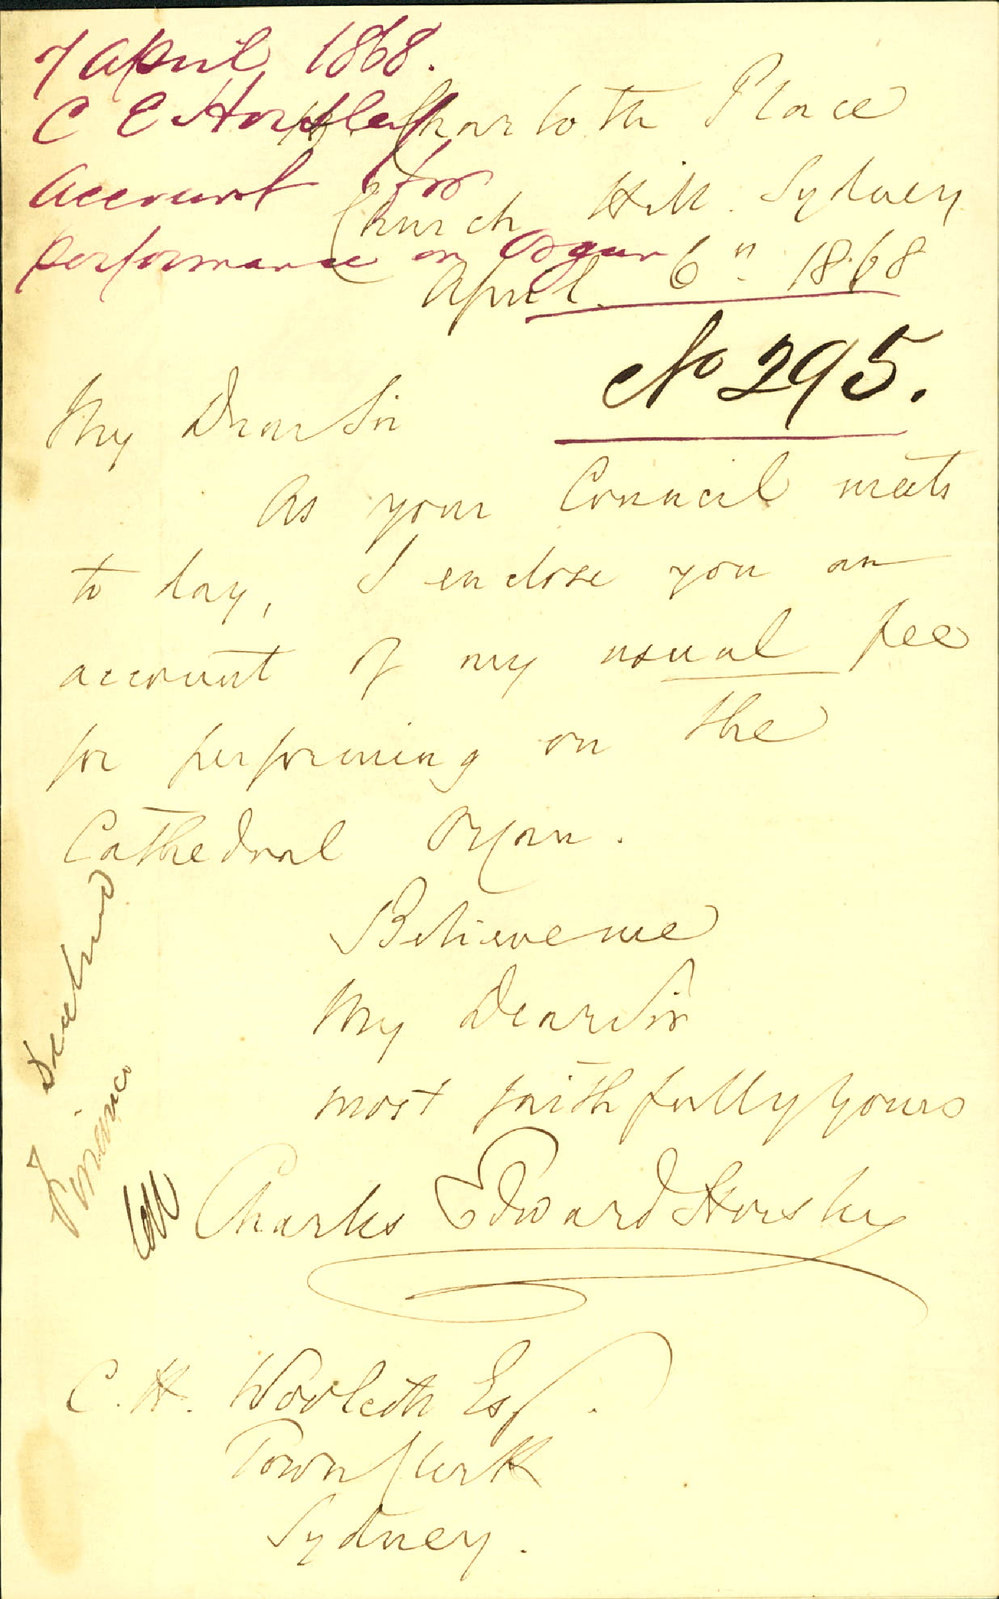 7 April 1868.
C E Horsley
Account for
performance on Organ
Charlotte Place
Church Hill. Sydney
April. 6" 1868
No 295.
My Dear Sir
As your Council meets
to day, I enclose you an
account of my usual fee
for performing on the
Cathedral Organ.
Believe me
My Dear Sir
most faithfully yours
Charles Edward Horsley
Finance
C. H. Woolcott Esq.
Town Clerk
Sydney.